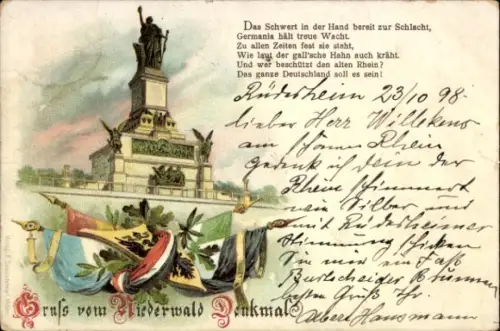 Das Schwert in der Hand bereit zur Schlacht,
Germania hält treue Wacht.
Zu allen Zeiten fest sie steht,
Wie laut der gall'sche Hahn auch kräht.
Und wer beschützt den alten Rhein?
Das ganze Deutschland soll es sein!
Rüdesheim 23/10 98.
lieber Herr Willekens
am schönen Rhein
gedenk ich dein der
Rhein schimmert
wie Silber und
mit Rüdesheimer
Stimmung schicken
Sie mir ein Faß
Burtscheider Brunnen
besten Gruß Ihr
Albert Hausmann
Gruss vom Niederwald Denkmal